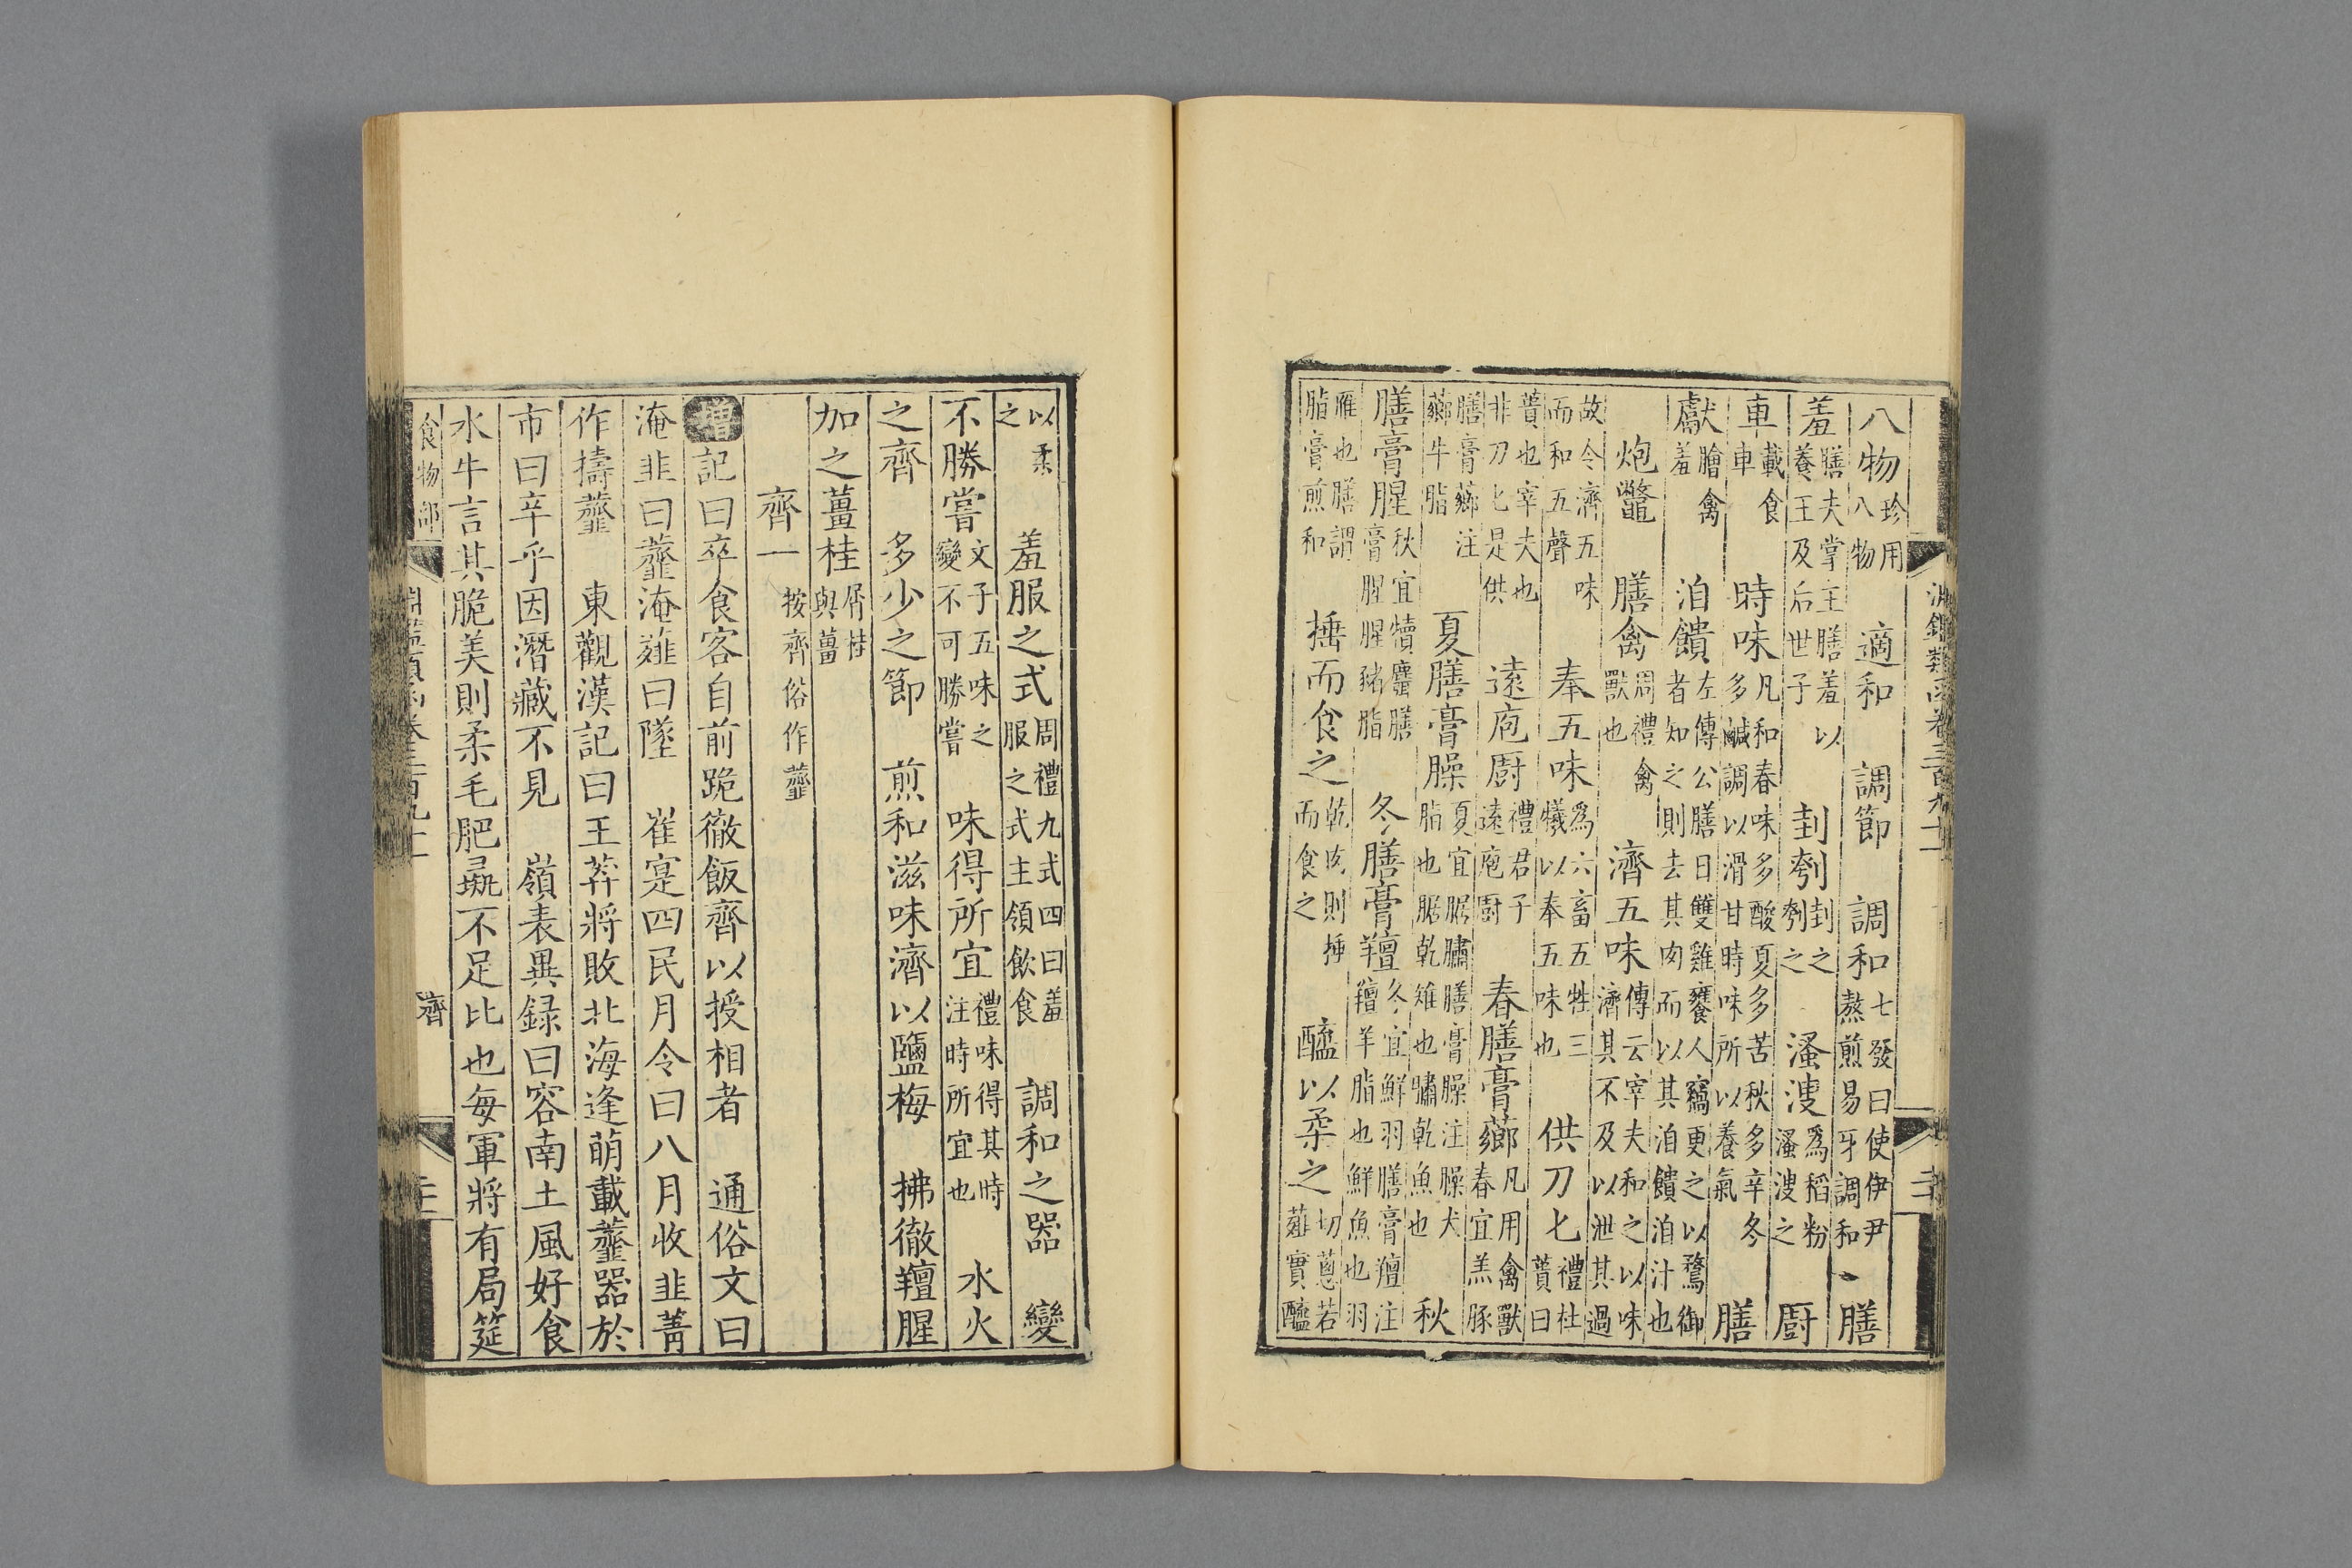 八物珍用八物　適和　調節　調和七發曰使伊尹熬煎易牙調和　膳
羞膳夫掌主膳羞以養王及后世子　刲刳刲之刳之　溞溲爲稻粉溞溲之　廚
車載食車　時味凡和春味多酸夏多苦秋多辛冬多鹹調以滑甘時味所以養氣　膳
獻膾禽羞　洎饋左傳公膳日雙雞饔人竊更之以鶩御者知之則去其肉而以其洎饋洎汁也
炮鼈　膳禽周禮禽獸也　濟五味傳云宰夫和之以味濟其不及以泄其過
故令濟五味而和五聲　奉五味爲六畜五牲三犧以奉五味也　供刀匕禮杜蕢曰
蕢也宰夫也非刀匕是供　遠庖厨禮君子遠庖厨　春膳膏薌凡用禽獸春宜羔豚
膳膏薌注薌牛脂　夏膳膏臊夏宜腒鱐膳膏臊注臊犬脂也腒乾雉也鱐乾魚也　秋
膳膏腥秋宜犢麛膳膏腥腥豬脂　冬膳膏羶冬宜鮮羽膳膏羶注羶羊脂也鮮魚也羽
雁也膳謂脂膏煎和　捶而食之乾肉則捶而食之　醯以柔之切蔥若薤實醯
以柔之　羞服之式周禮九式四曰羞服之式式主領飲食　調和之器　變
不勝嘗文子五味之變不可勝嘗　味得所宜禮味得其時注時所宜也　水火
之齊　多少之節　煎和滋味濟以鹽梅　拂徹羶腥
加之薑桂屑桂與薑
齊一按齊俗作虀
增記曰卒食客自前跪徹飯齊以授相者　通俗文曰
淹韭曰虀淹薤曰墜　崔寔四民月令曰八月收韭菁
作擣虀　東觀漢記曰王莽將敗北海逢萌載虀器於
市曰辛乎因潛藏不見　嶺表異録曰容南土風好食
水牛言其脆美則柔毛肥彘不足比也每軍將有局筵
食物部　淵鑑類函卷三百九十一　齊